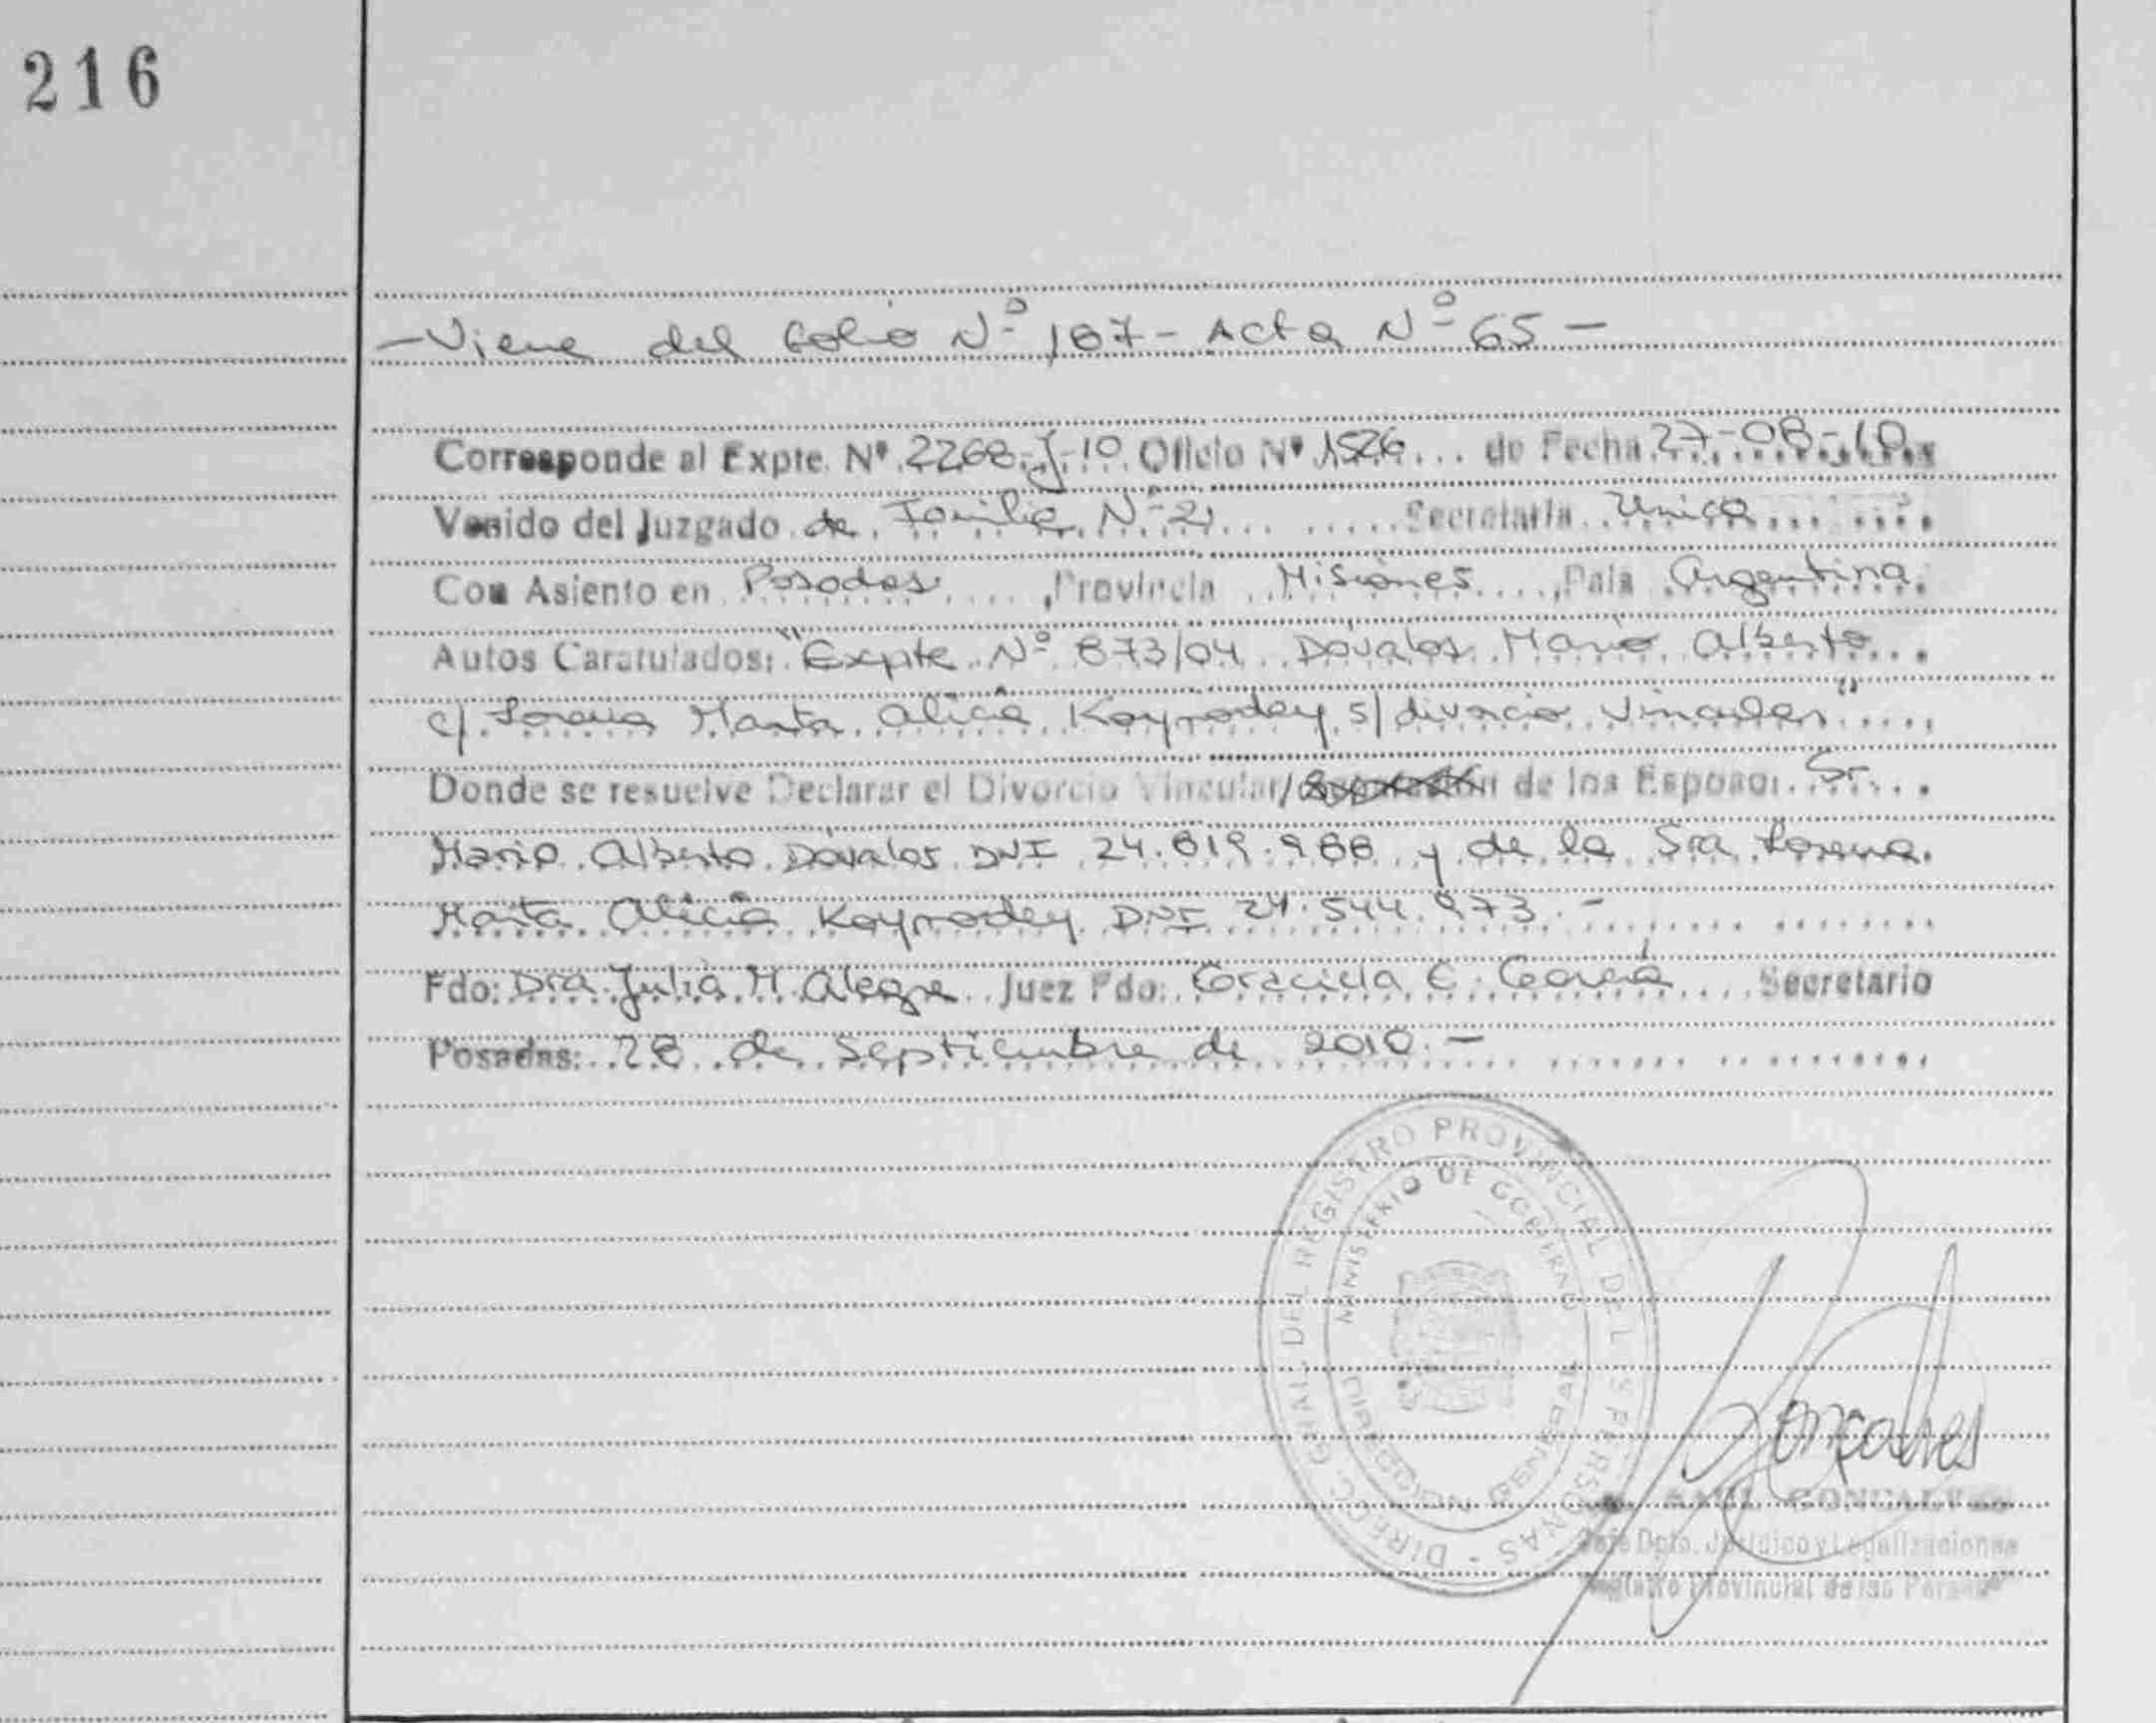 216
-Viene del folio Nº 187 - Acta Nº 65 -
Corresponde al Expte. Nº 2268-J-10 Oficio Nº 1526 de Fecha 27-08-10
Venido del Juzgado de Familia Nº 2 Secretaría Unica
Con Asiento en Posadas, Provincia Misiones, País Argentina
Autos Caratulados: "Expte Nº 873/04 Dávalos Mario Alberto
c/ Lorena Marta Alicia s/ divorcio Vincular"
Donde se resuelve Declarar el Divorcio Vincular/ de los Esposos: Sr.
Mario Alberto Dávalos DNI 24.819.988 y de la Sra Lorena
Marta Alicia DNI 24.544.973.-
Fdo: Dra. Julia M. Alegre Juez Fdo: Graciela E. García Secretario
Posadas: 28 de Septiembre de 2010.-
DIREC. GRAL. DEL REGISTRO PROVINCIAL DE LAS PERSONAS -
MINISTERIO DE GOBIERNO
DIRECCION GENERAL
Gonçalves
GONCALVES
Jefe Dpto. Jurídico y Legalizaciones
Registro Provincial de las Personas